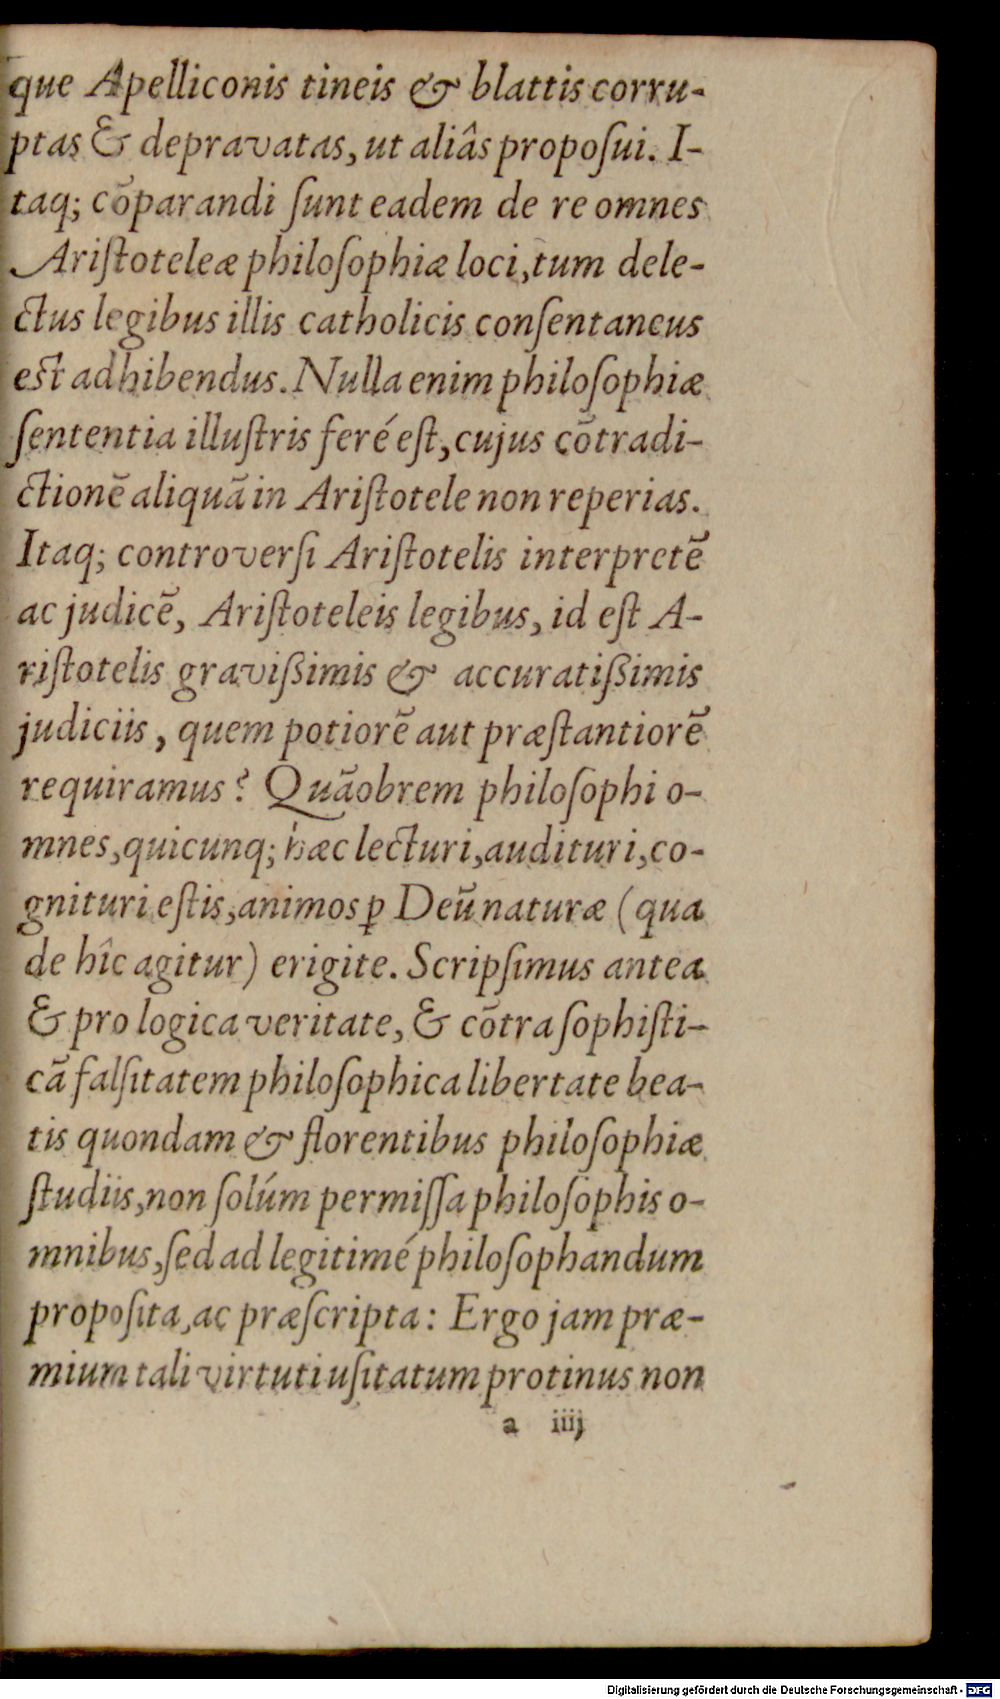 que Apelliconis tineis & blattis corru-
ptas & depravatas, ut aliâs proposui. I-
taq; cõparandi sunt eadem de re omnes
Aristoteleæ philosophiæ loci, tum dele-
ctus legibus illis catholicis consentaneus
est adhibendus. Nulla enim philosophiæ
sententia illustris feré est, cujus cõtradi-
ctionẽ aliquã in Aristotele non reperias.
Itaq; controversi Aristotelis interpretẽ
ac judicẽ, Aristoteleis legibus, id est A-
ristotelis gravißimis & accuratißimis
judiciis, quem potiorẽ aut præstantiorẽ
requiramus? Quãobrem philosophi o-
mnes, quicunq; hæc lecturi, audituri, co-
gnituri estis, animos ꝑ Deũ naturæ (qua
de hîc agitur) erigite. Scripsimus antea
& pro logica veritate, & cõtra sophisti-
cã falsitatem philosophica libertate bea-
tis quondam & florentibus philosophiæ
studiis, non solúm permissa philosophis o-
mnibus, sed ad legitimé philosophandum
proposita, ac præscripta: Ergo jam præ-
mium tali virtuti usitatum protinus non
a iiij
Digitalisierung gefördert durch die Deutsche Forschungsgemeinschaft - DFG